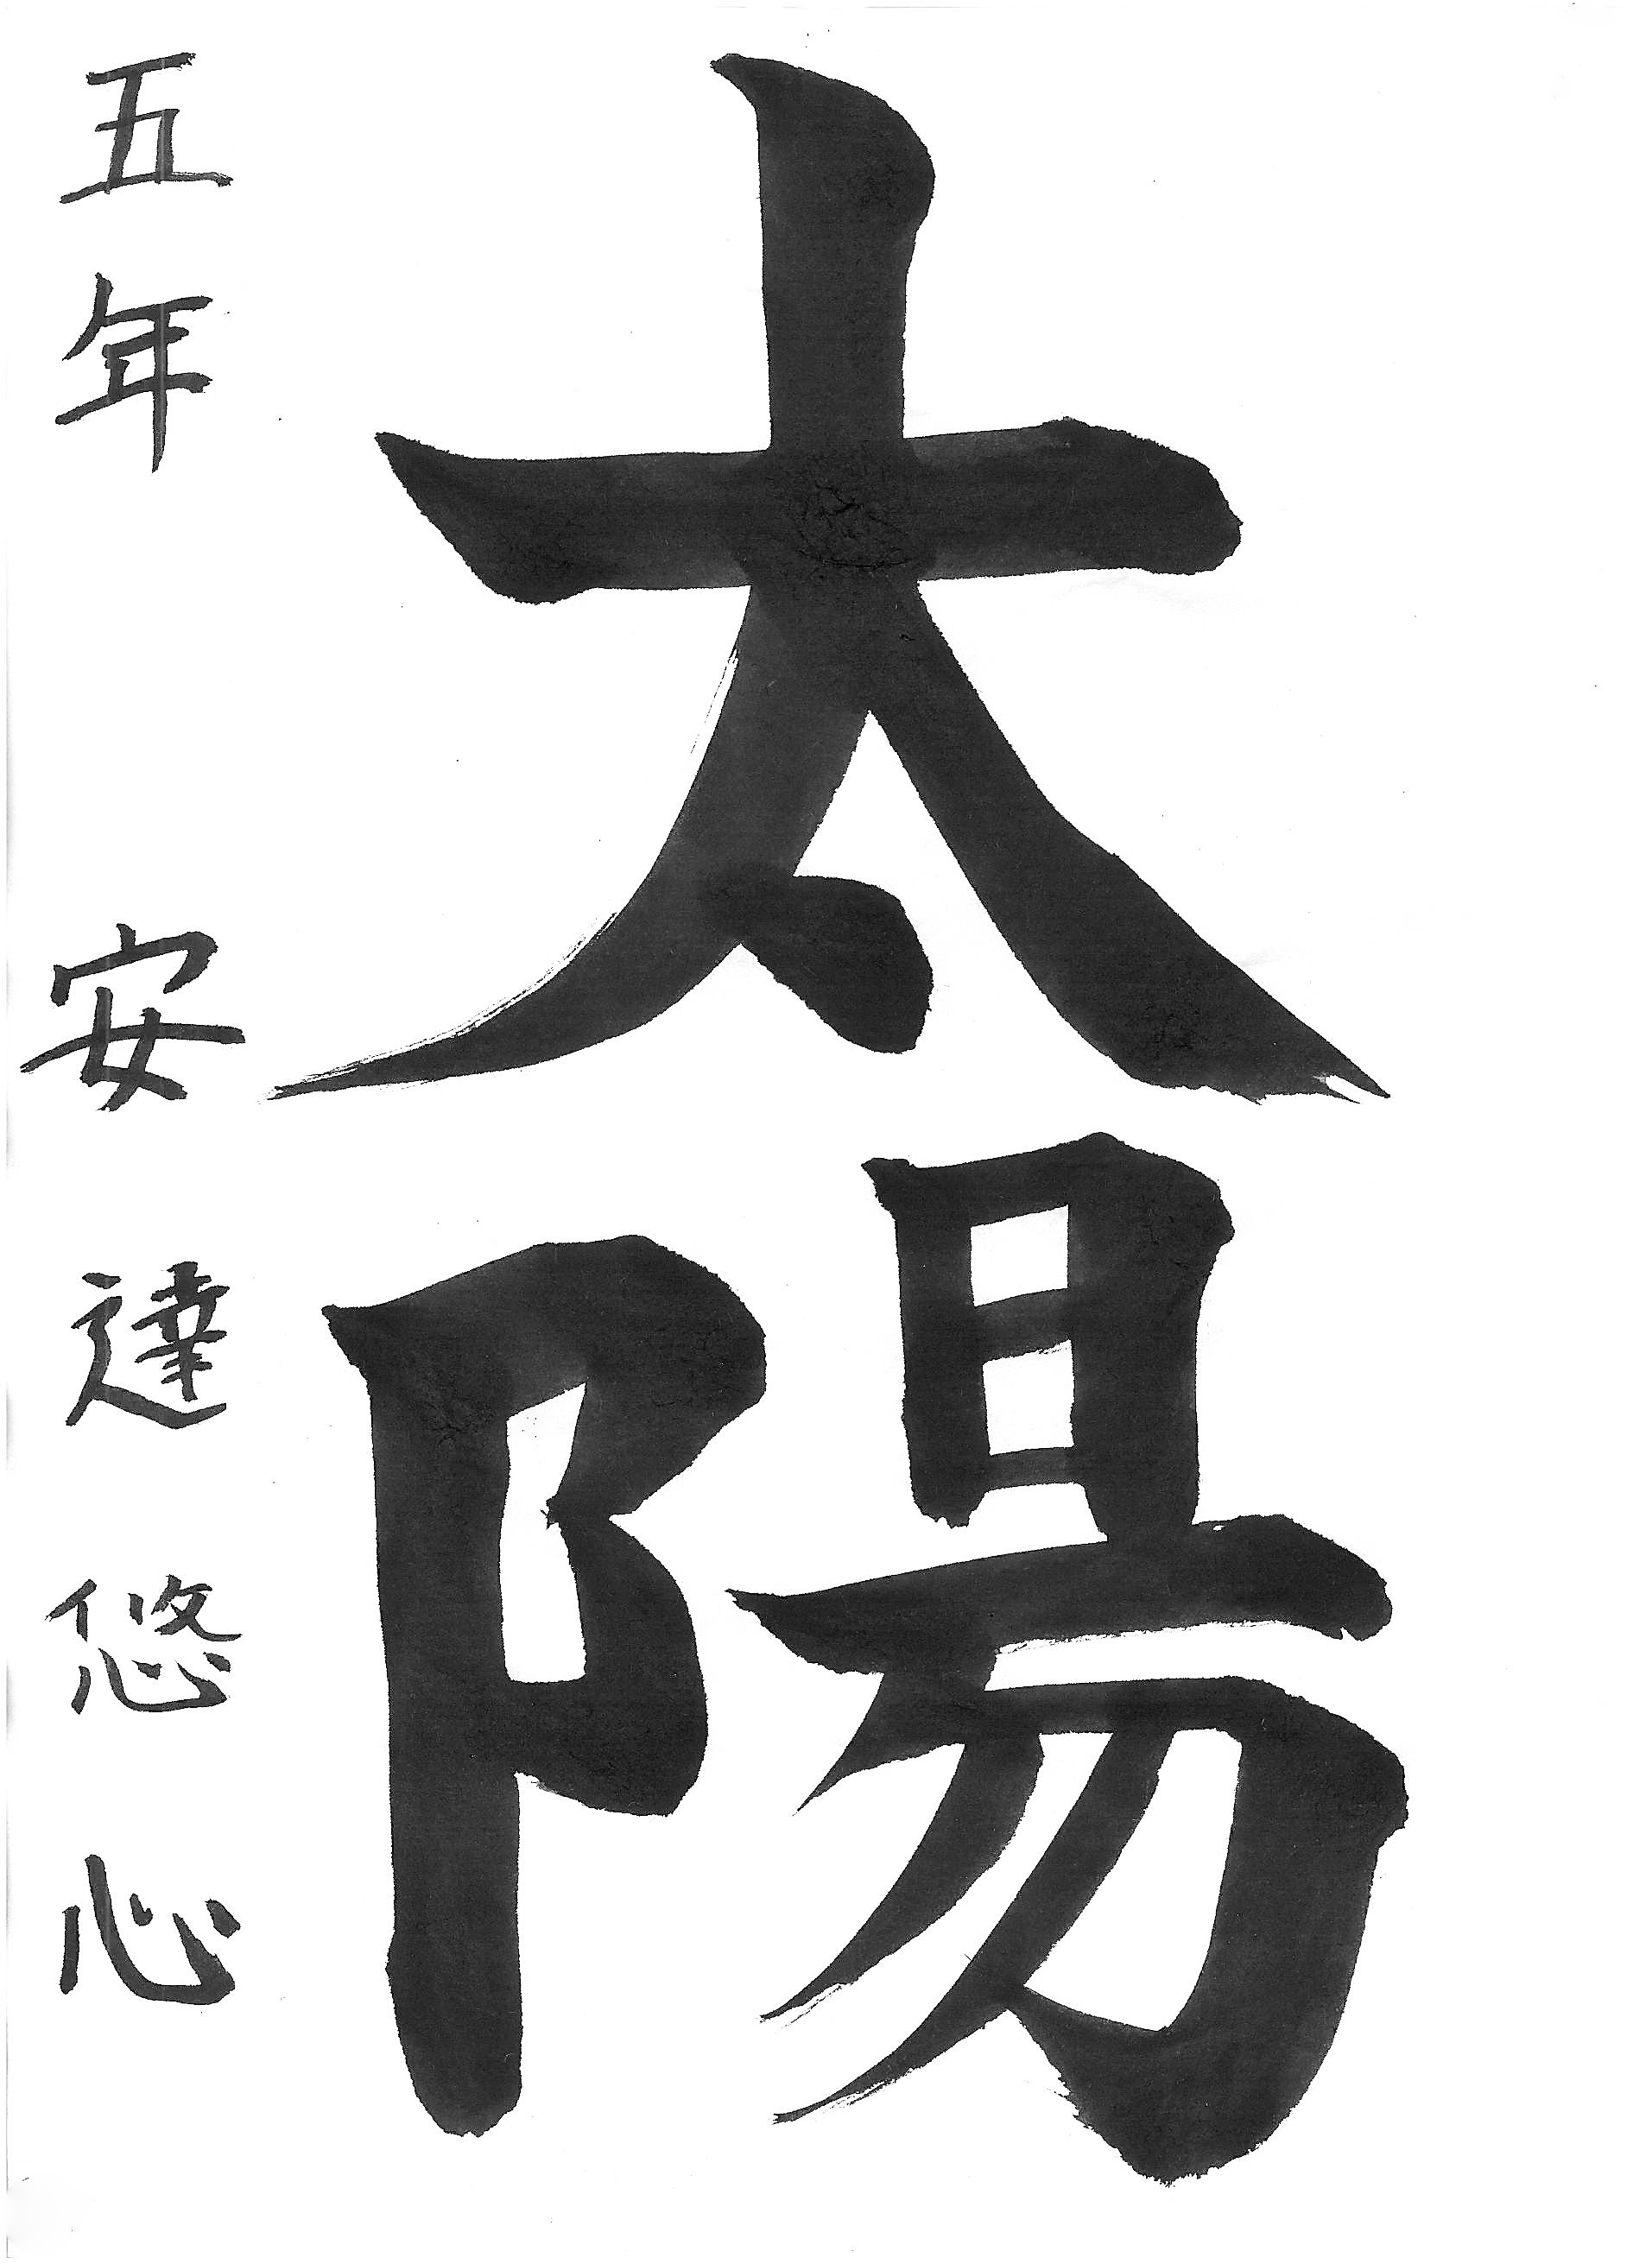 太陽
五年 安達悠心